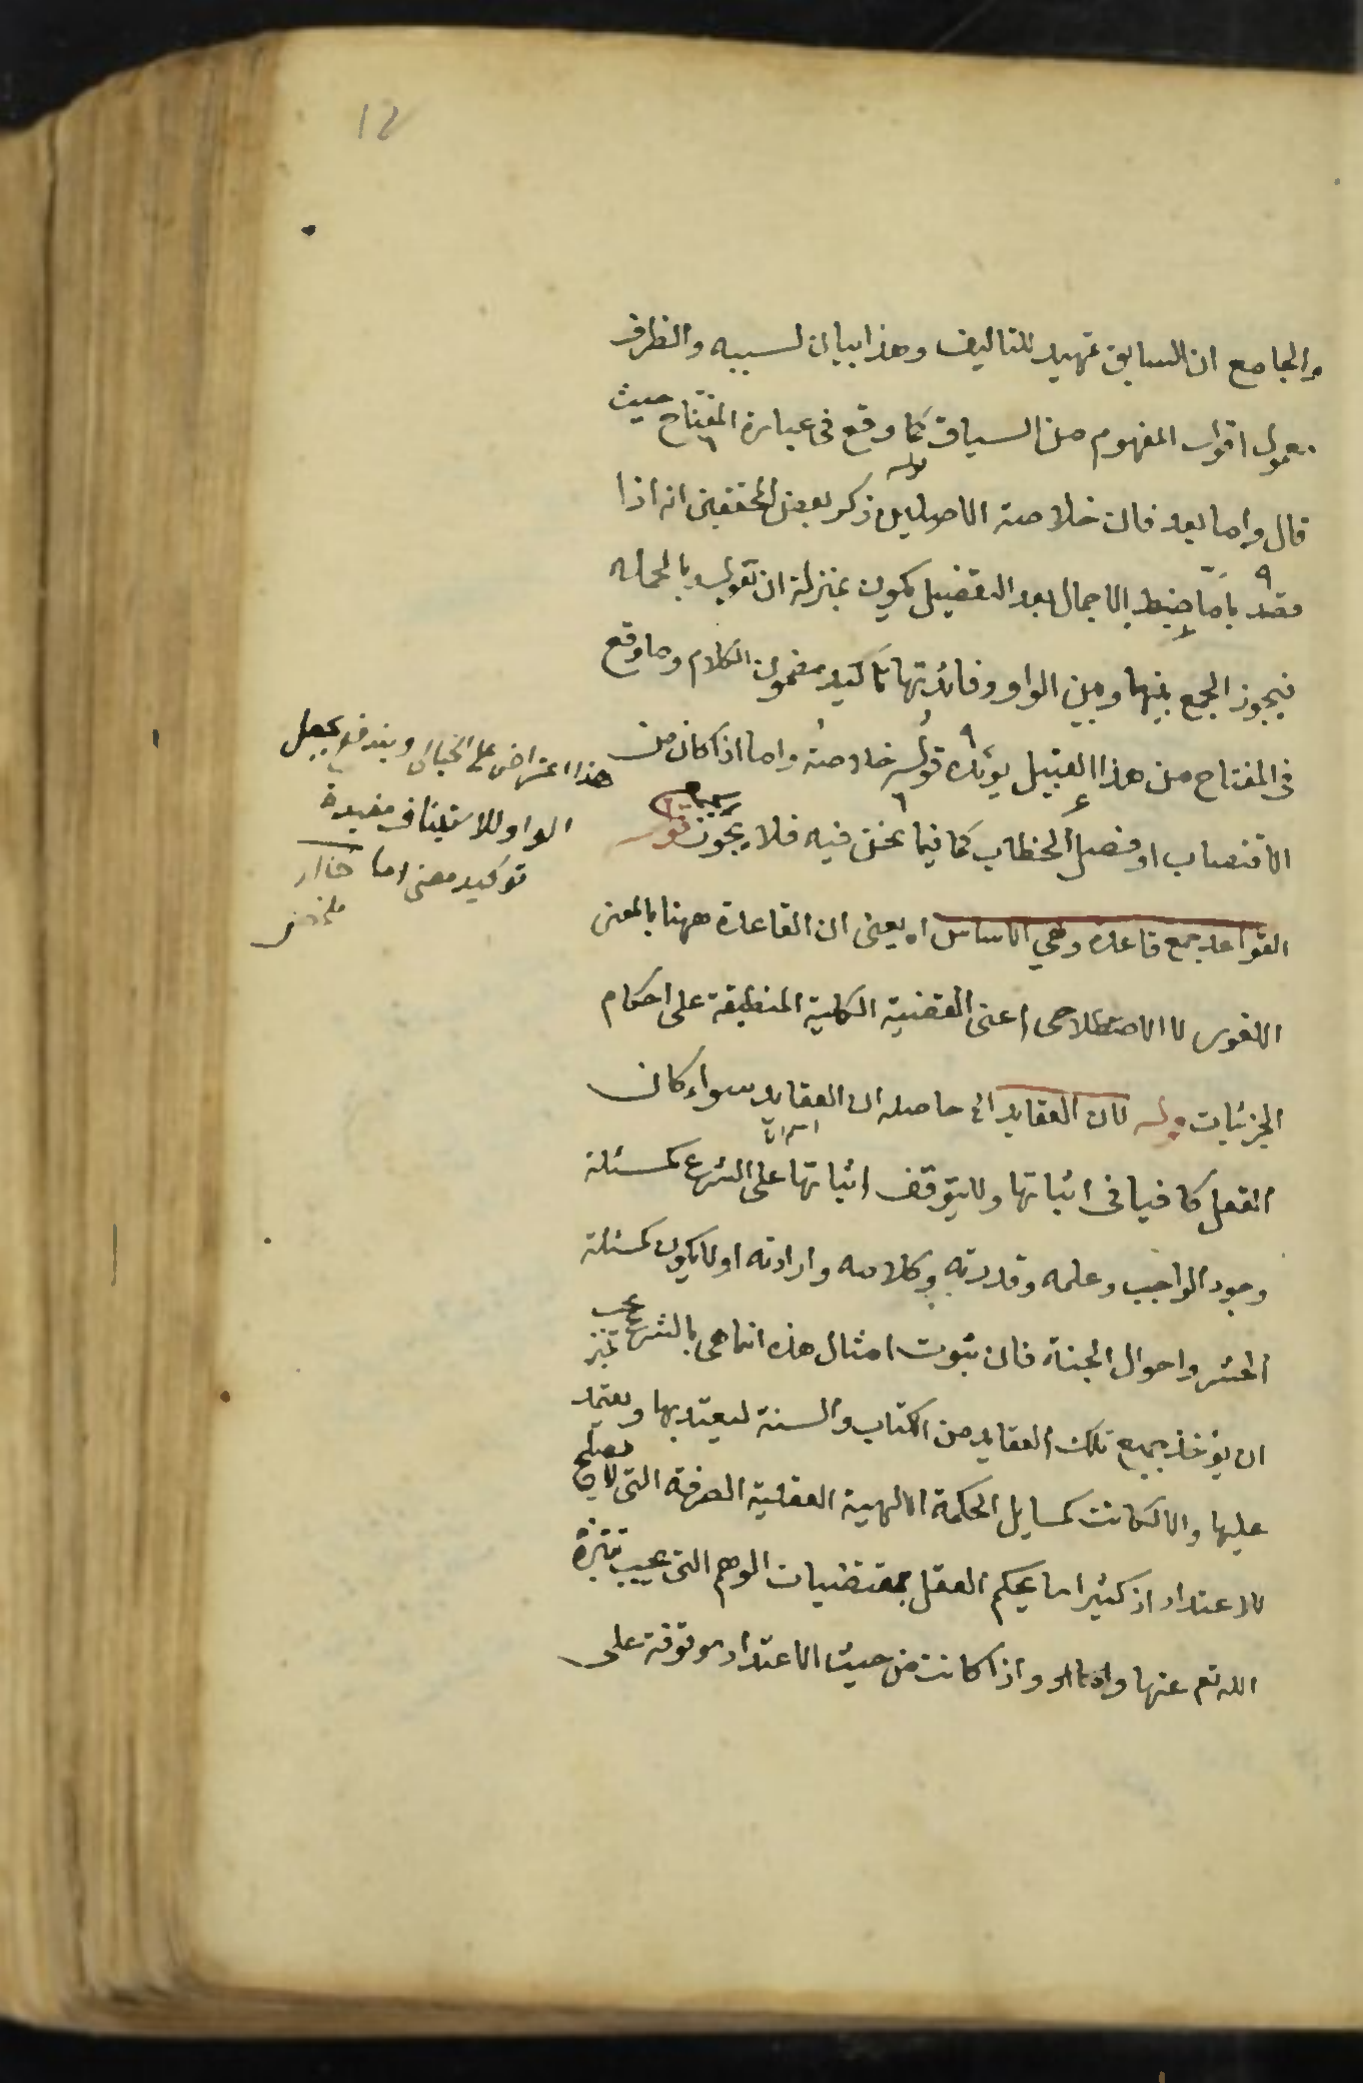 12
والجامع ان السابق تمهيد للتاليف وهذا بيان لسببه والظرف
معمول اقول المفهوم من السياق كما وقع فى عبارة المفتاح حيث
قال واما بعد فان خلاصة الاصلين ذكر بعض المحققين انه اذا
قصد باما ضبط الاجمال بعد التفصيل يكون بمنزلة ان تقول وبالجملة
فيجوز الجمع بينها وبين الواو وفائدتها تاكيد مضمون الكلام وما وقع
فى المفتاح من هذا القبيل يؤيده قوله خلاصة واما اذا كان من
الاقتضاب او فصل الخطاب كما فيما نحن فيه فلا يجوز قوله
القواعد جمع قاعدة وهي الاساس اه يعنى ان القاعدة ههنا بالمعنى
اللغوى لا الاصطلاحى اعنى القضية الكلية المنطبقة على احكام
الجزئيات قوله لان العقايد الخ حاصله ان العقايد سواء كان
العقل كافيا فى اثباتها ولا يتوقف اثباتها على الشرع كمسئلة
وجود الواجب وعلمه وقدرته وكلامه وارادته او لا يكون كمسئلة
الحشر واحوال الجنة فان ثبوت امثال هذه انما هى بالشرع يجب
ان يؤخذ جميع تلك العقايد من الكتاب والسنة ليعتد بها ويعتمد
عليها والا لكانت كمسايل الحكمة الالهية العقلية الصرفة التى لا تصلح
للاعتداد اذ كثيرا ما يحكم العقل بمقتضيات الوهم التى يجب تنزه
الله تع عنها واذا كانت من حيث الاعتداد موقوفة على
هذا اعتراض على الخيالى ويندفع بجعل
الواو للاستيناف مفيدة
توكيد معنى اما